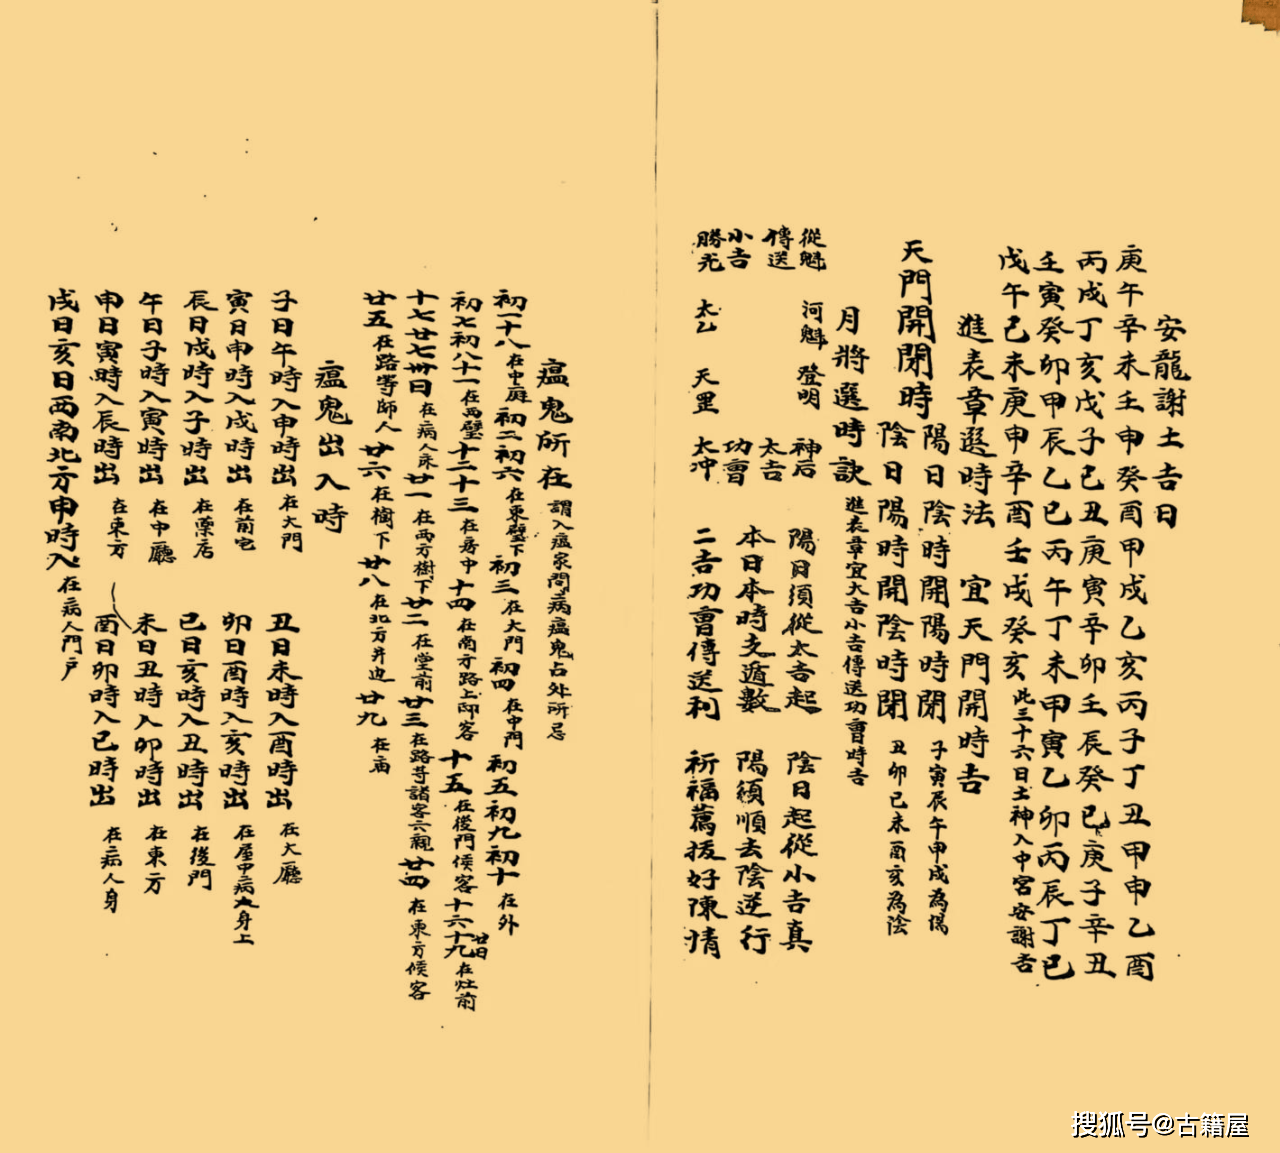 安龍謝土吉日
庚午辛未壬申癸酉甲戌乙亥丙子丁丑甲申乙酉
丙戌丁亥戊子己丑庚寅辛卯壬辰癸巳庚子辛丑
壬寅癸卯甲辰乙巳丙午丁未甲寅乙卯丙辰丁巳
戊午己未庚申辛酉壬戌癸亥 此三十六日土神入中宮安謝吉
進表章選時法 宜天門開時吉
天門開閉時 陽日陰時開陽時閉 子寅辰午申戌為陽
陰日陽時開陰時閉 丑卯巳未酉亥為陰
月將選時訣 進表章宜大吉小吉傳送功曹時吉
從魁 河魁 登明 神后 陽日須從太吉起 陰日起從小吉真
傳送 太吉 本日本時支遁數 陽須順去陰逆行
小吉 功曹
勝光 太乙 天罡 太冲 二吉功曹傳送利 祈福薦拔好陳情
瘟鬼所在 謂入瘟家問病瘟鬼占外所忌
初一十八 在中庭 初二初六 在東壁下 初三 在大門 初四 在中門 初五初九初十 在外
初七初八十一 在西壁 十二十三 在房中 十四 在南方路上邸客 十五 在後門侯客 十六十九廿日 在灶前
十七廿七卅日 在病人床 廿一 在西方樹下 廿二 在堂前 廿三 在路苛諸客六親 廿四 在東方候客
廿五 在路等師人 廿六 在樹下 廿八 在北方井边 廿九 在庙
瘟鬼出入時
子日午時入申時出 在大門 丑日未時入酉時出 在大廳
寅日申時入戌時出 在前宅 卯日酉時入亥時出 在屋中病人身上
辰日戌時入子時出 在藥店 巳日亥時入丑時出 在後門
午日子時入寅時出 在中廳 未日丑時入卯時出 在東方
申日寅時入辰時出 在東方 酉日卯時入巳時出 在病人身
戌日亥日西南北方申時入 在病人門户
搜狐号@古籍屋